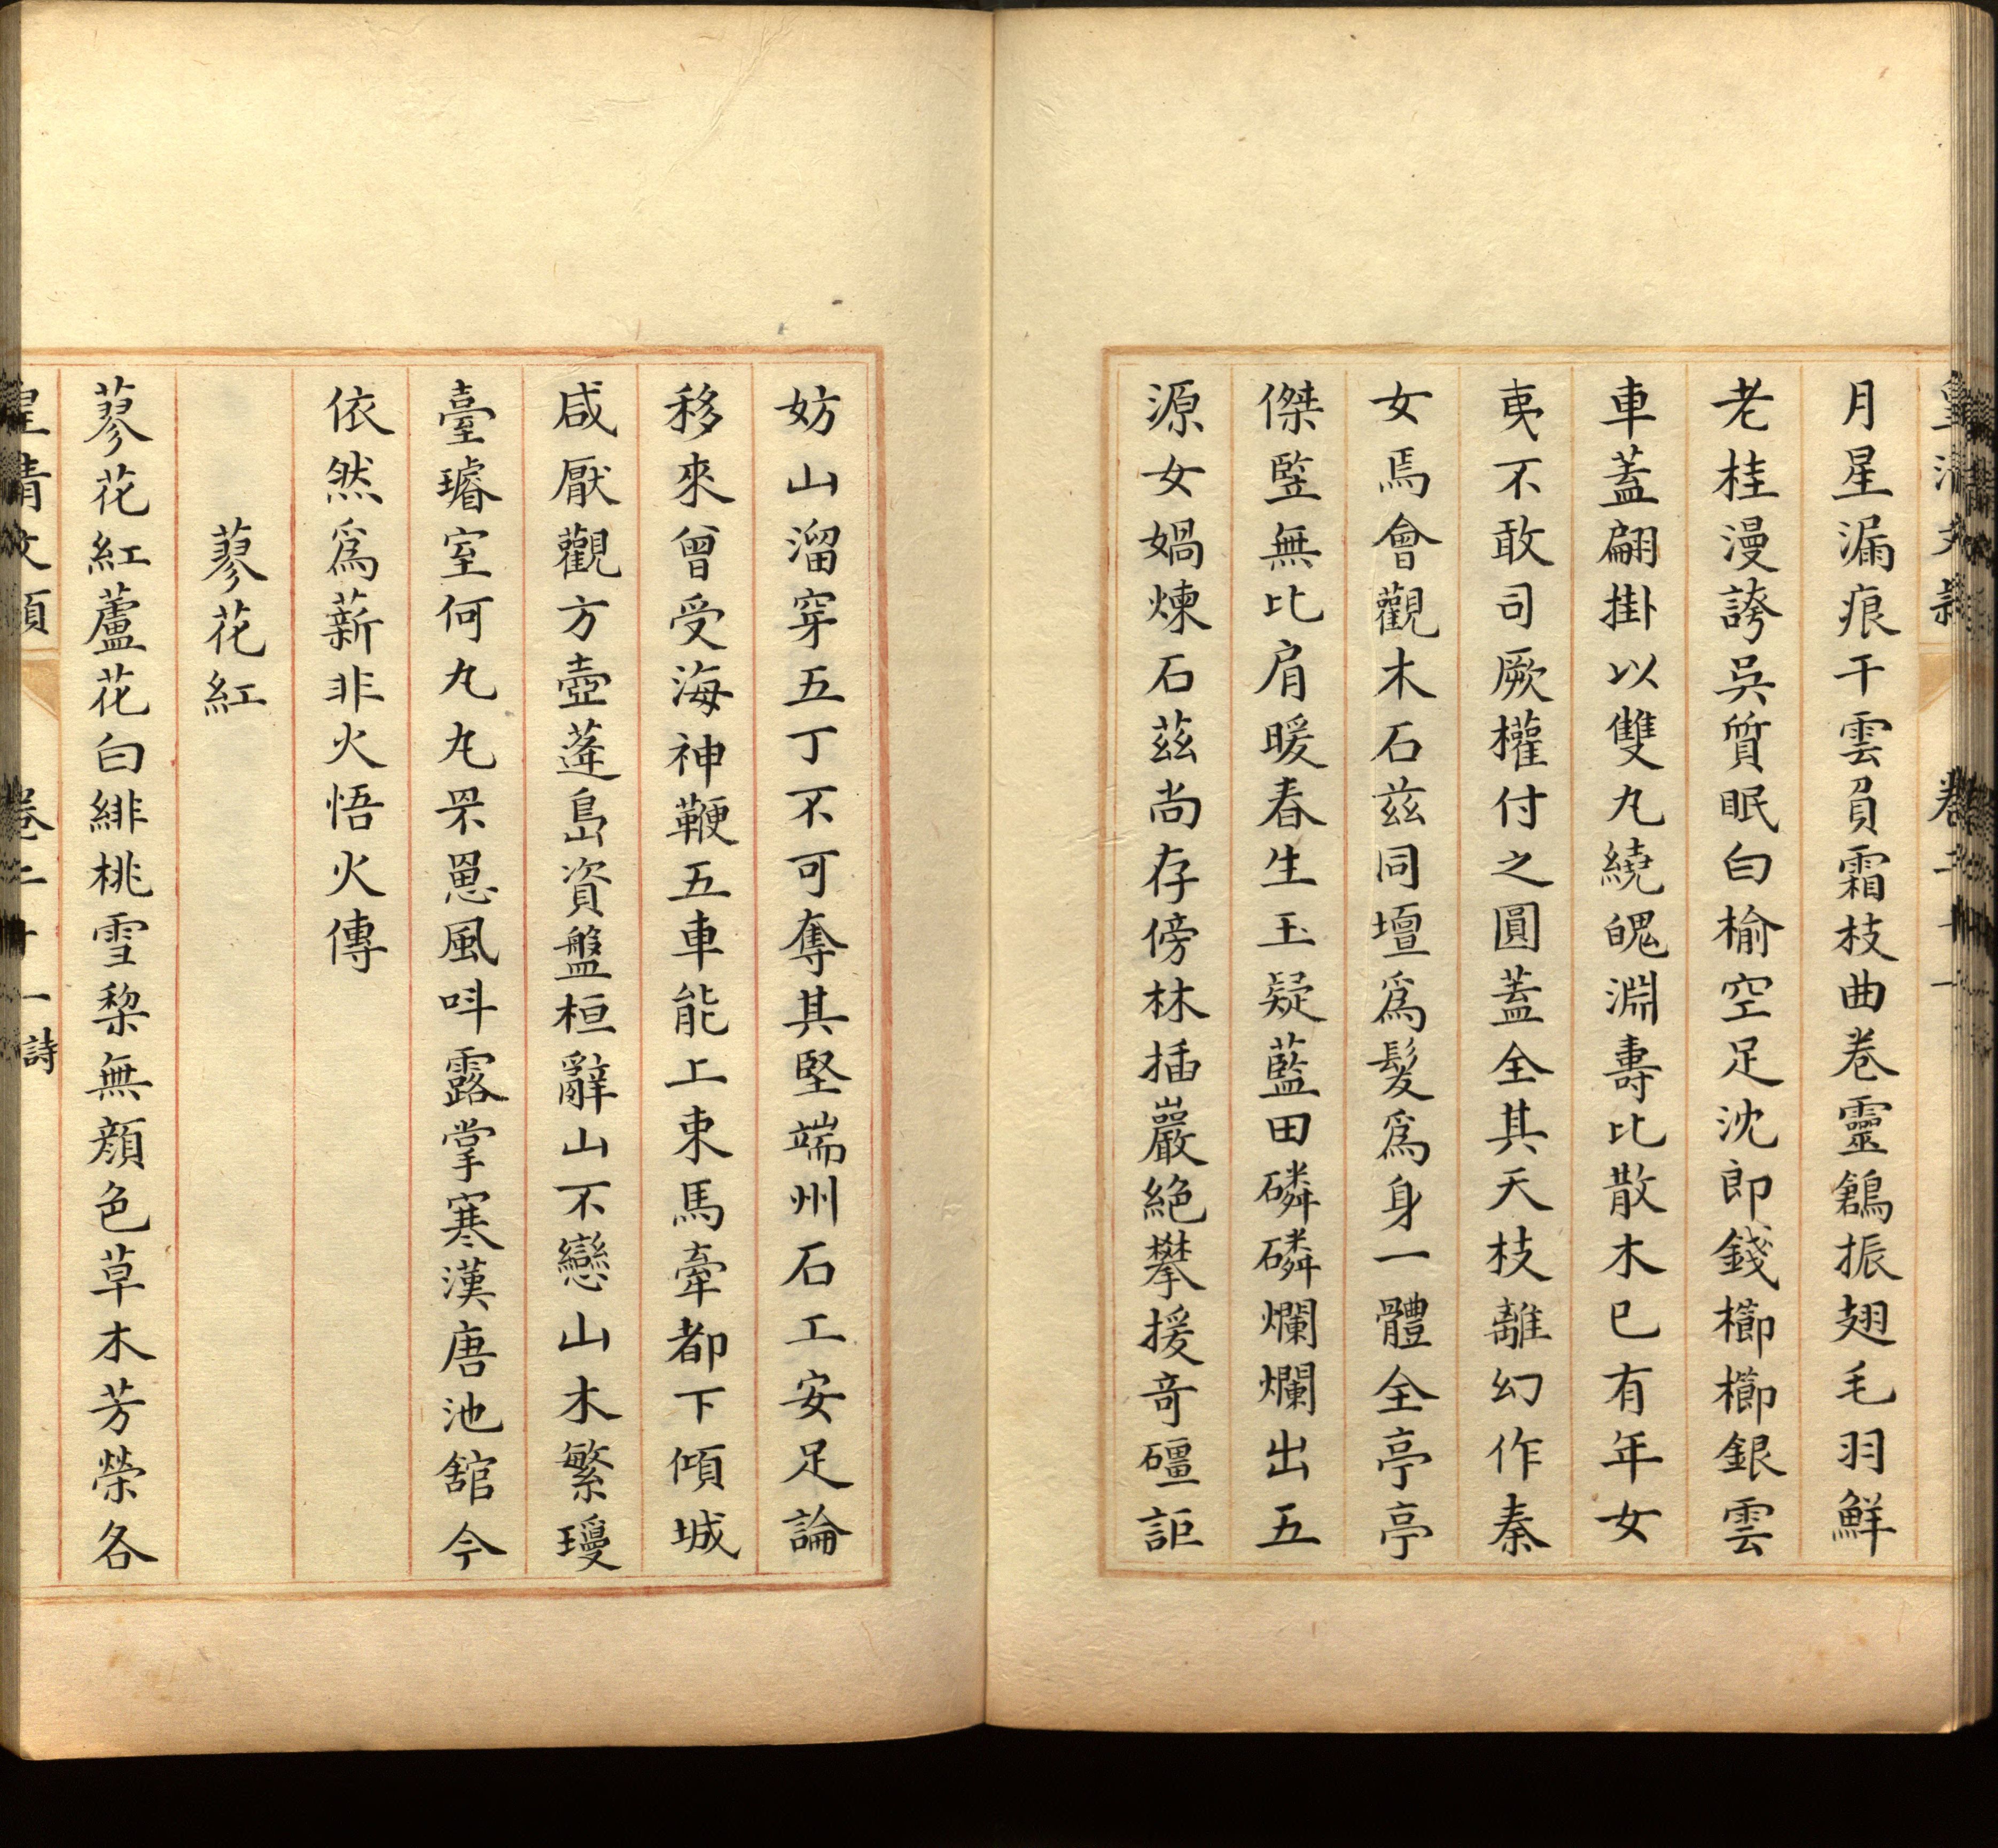 皇清文穎　卷二十一
月星漏痕干雲負霜枝曲卷靈鶴振翅毛羽鮮
老桂漫誇吳質眠白榆空足沈郎錢櫛櫛銀雲
車蓋翩掛以雙丸繞魄淵壽比散木已有年女
夷不敢司厥權付之圓蓋全其天枝離幻作秦
女焉會觀木石茲同壇爲髮爲身一體全亭亭
傑竪無比肩暖春生玉疑藍田磷磷爛爛出五
源女媧煉石茲尚存傍林插巖絕攀援奇礓詎
妨山溜穿五丁不可奪其堅端州石工安足論
移來曾受海神鞭五車能上束馬牽都下傾城
咸厭觀方壺蓬島資盤桓辭山不戀山木繁瓊
臺璿室何丸丸罘罳風呌露掌寒漢唐池館今
依然爲薪非火悟火傳
蓼花紅
蓼花紅蘆花白緋桃雪梨無顏色草木芳榮各
皇清文穎　卷二十一 詩